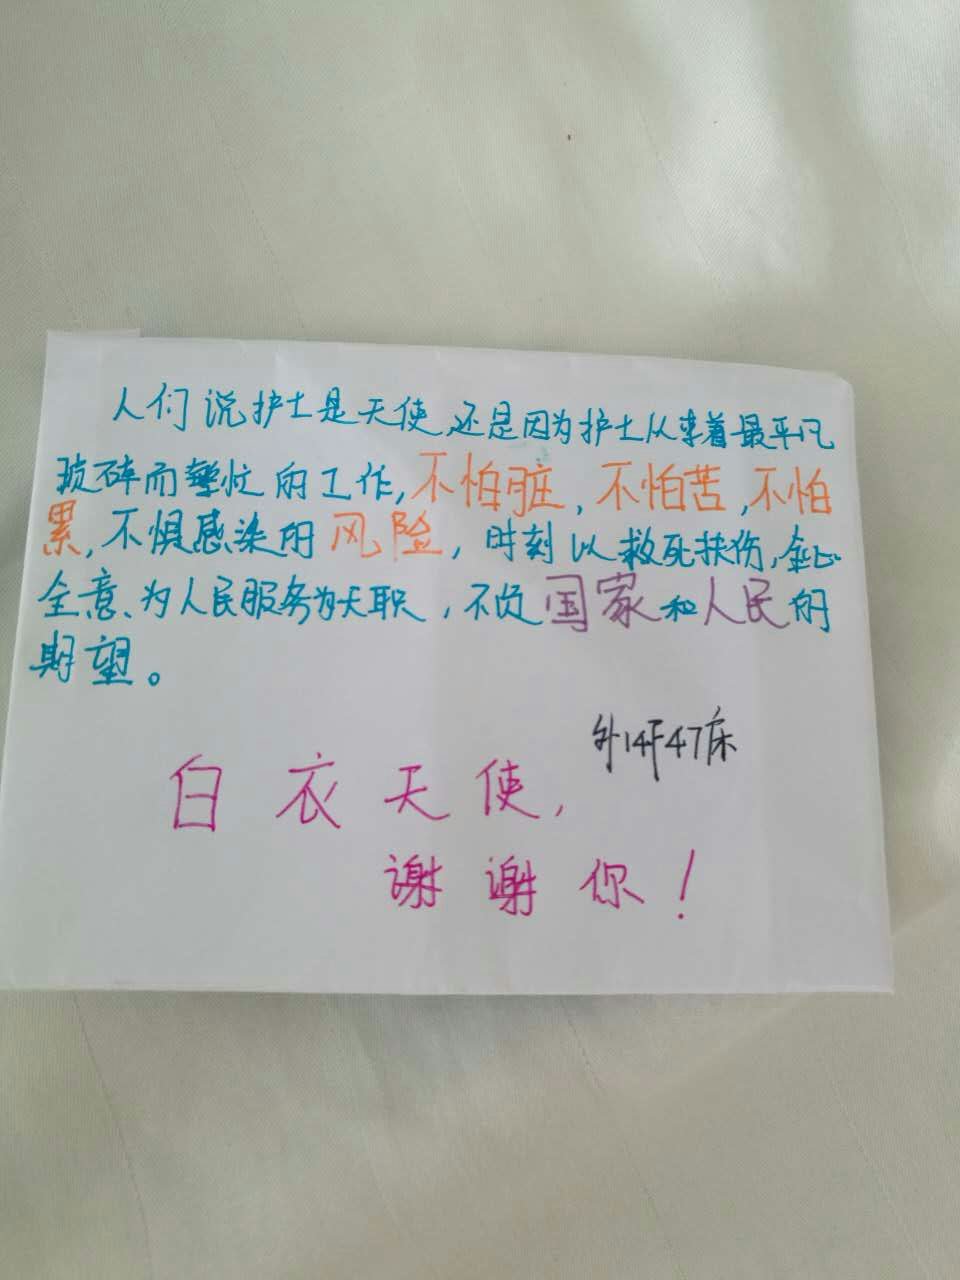 人们说护士是天使,还是因为护士从事着最平凡
琐碎而繁忙的工作,不怕脏,不怕苦,不怕
累,不惧感染的风险,时刻以救死扶伤,全心
全意、为人民服务为天职,不负国家和人民的
期望。
外14F47床
白衣天使,
谢谢你!